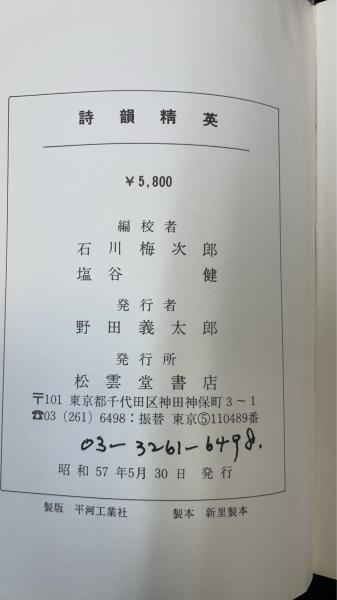 詩韻精英
￥5,800
編校者
石川梅次郎
塩谷 健
発行者
野田義太郎
発行所
松雲堂書店
〒101 東京都千代田区神田神保町3～1
☎03 (261) 6498：振替 東京⑤110489番
03-3261-6498.
昭和 57 年5月 30 日 発行
製版 平河工業社 製本 新里製本